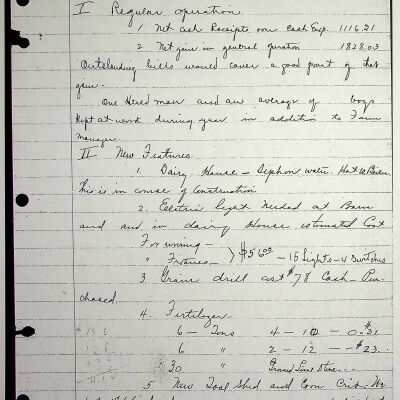 I Regular operation.
1. Net cash Receipts over Cash Exp. 1116.21
2 Net gain in general operation 1828.03
Outstanding bills would cover a good part of that
gain.
One Hired man and an average of boys
kept at work during year in addition to Farm
manager.
II New Features.
1. Dairy House - Siphon water. Hot W. Boiler.
This is in course of Construction
2. Electric light needed at Barn
and and in dairy House estimated Cost
For wiring -
" Fixtures - } $56.00 - 15 Lights - 4 Switches
3. Grain drill cost $78 Cash Pur-
chased.
4. Fertilizer -
6 - Tons 4 - 10 - 0 - $31.
6 " 2 - 12 - - $23.
30 " Ground Lime Stone -
5 New Tool Shed and Corn Crib. We